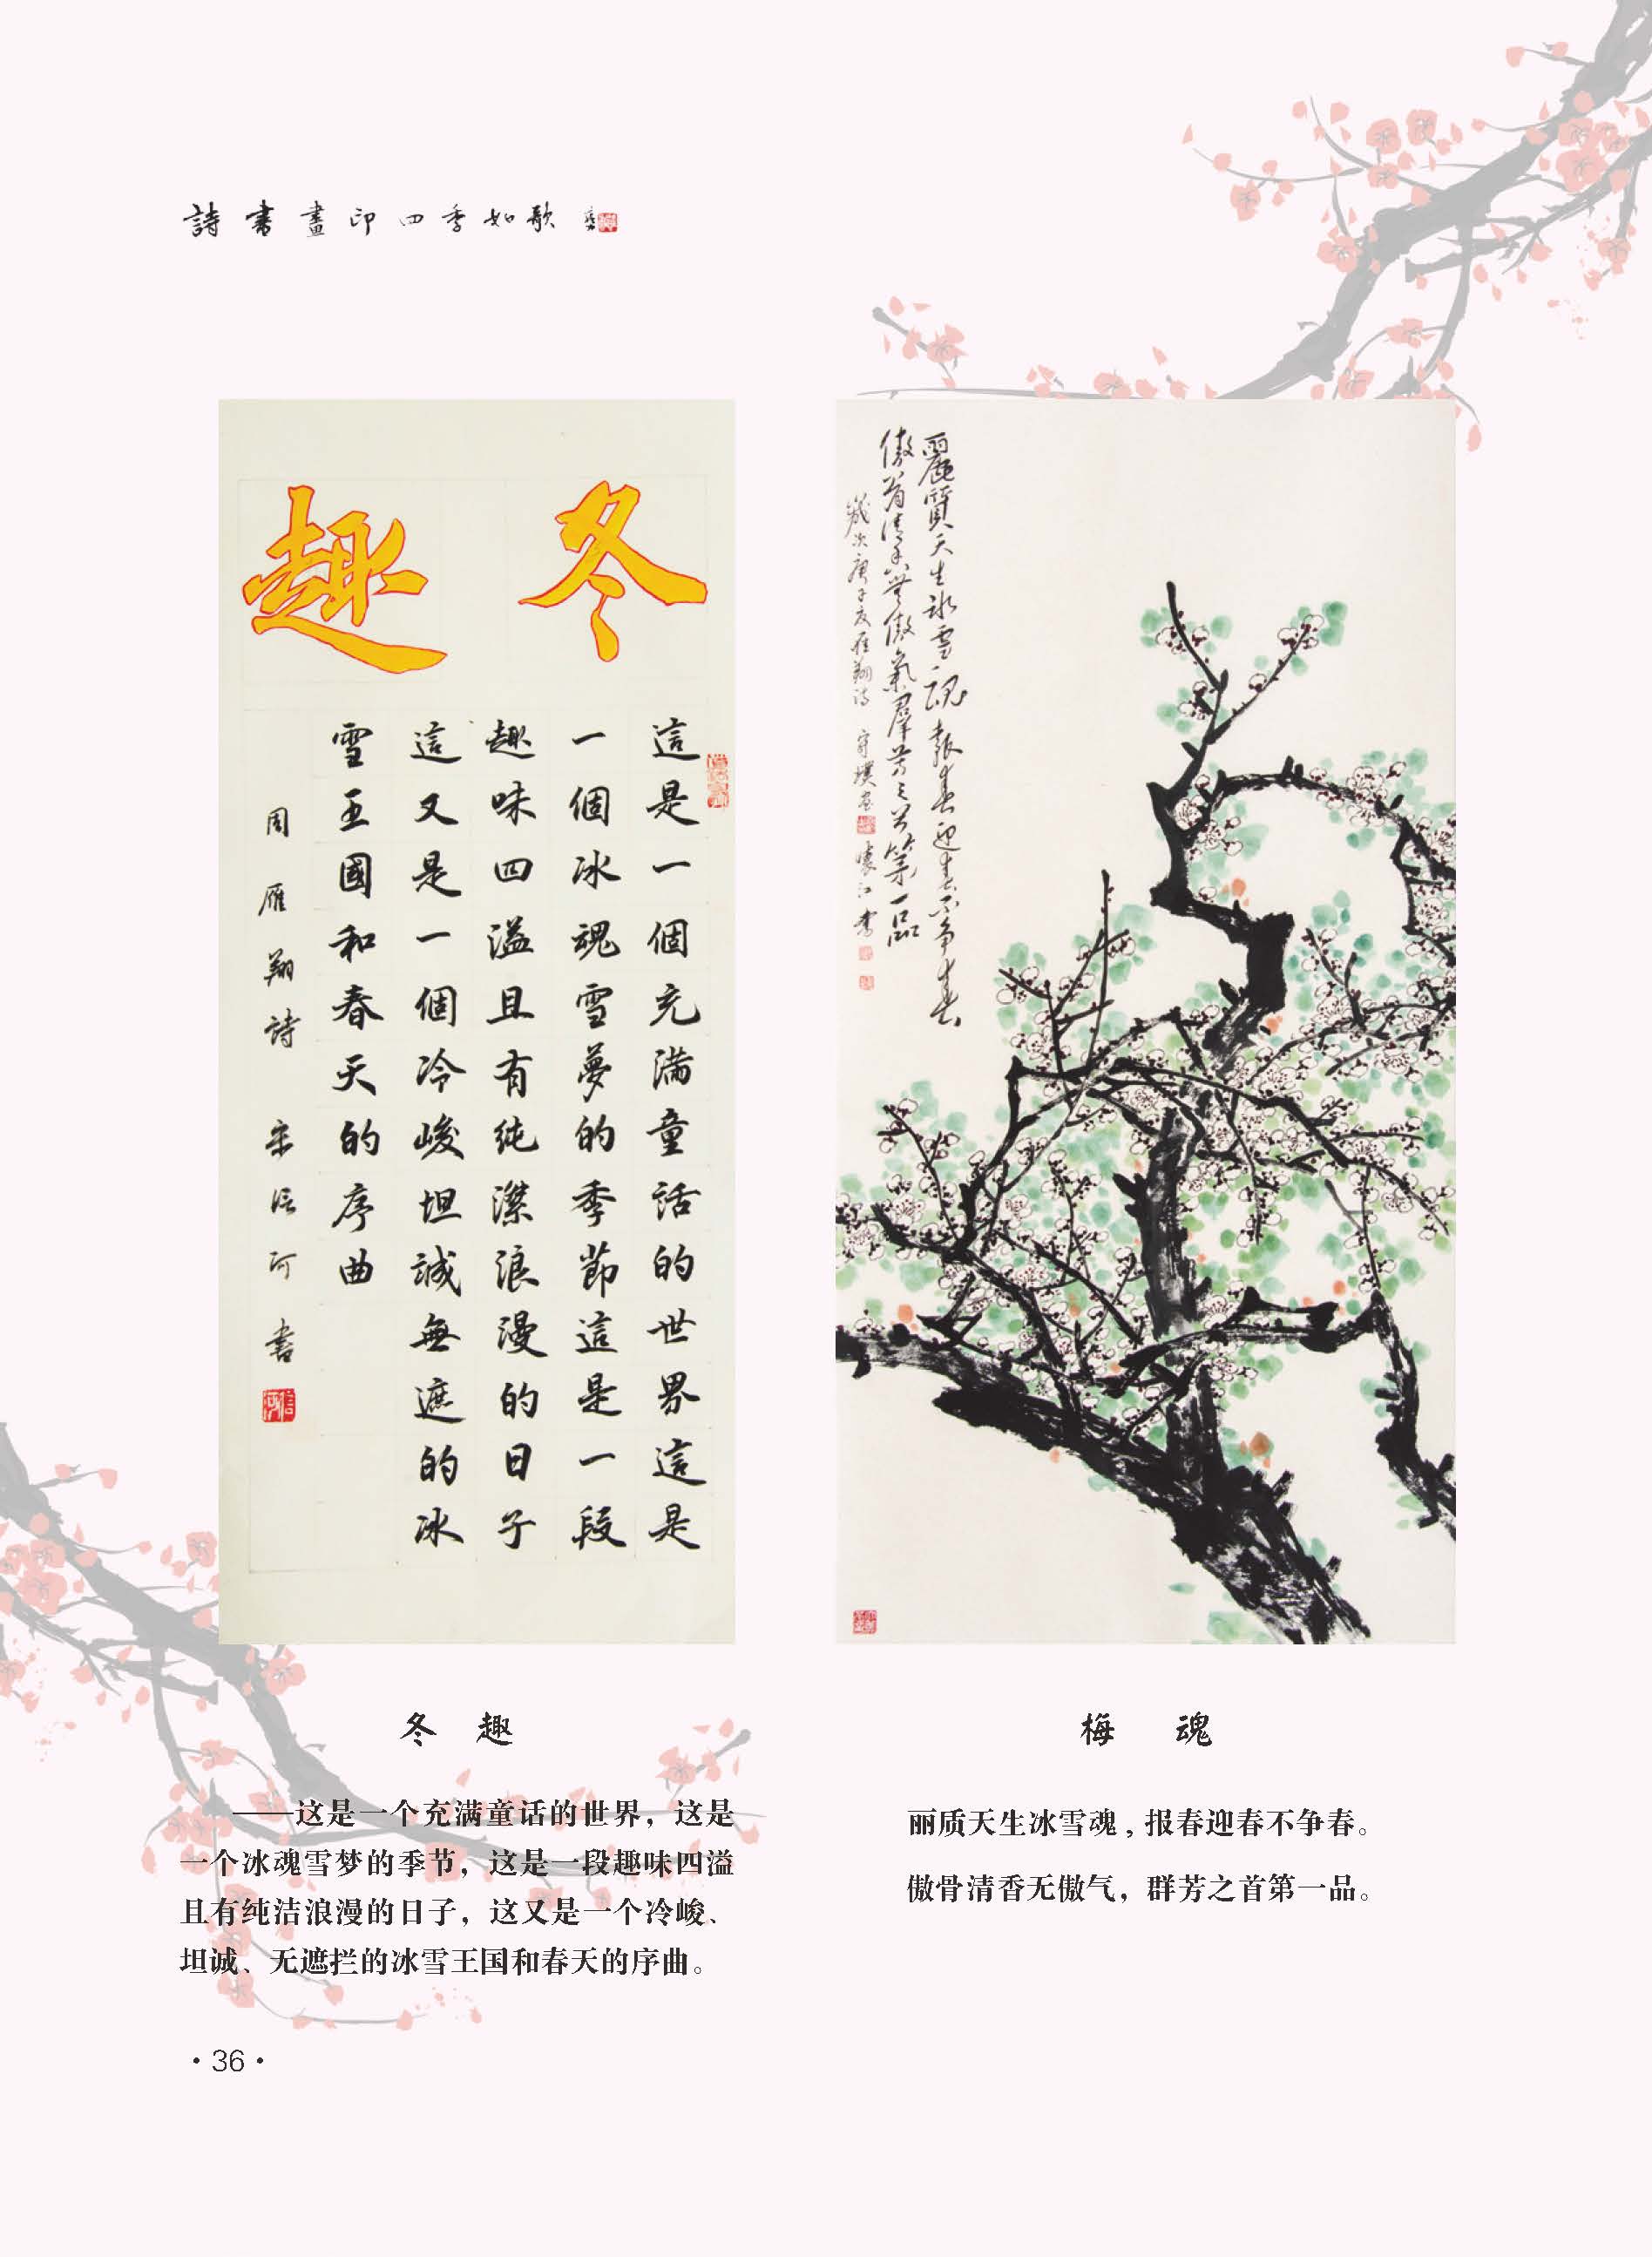 詩書畫印四季如歌
冬趣
這是一個充滿童話的世界這是
一個冰魂雪夢的季節這是一段
趣味四溢且有純潔浪漫的日子
這又是一個冷峻坦誠無遮的冰
雪王國和春天的序曲
周雁翔詩 宋信河書
麗質天生冰雪魂報春迎春不爭春
傲骨清香無傲氣群芳之首第一品
歲次庚子夏雁翔詩
冬 趣
——这是一个充满童话的世界，这是
一个冰魂雪梦的季节，这是一段趣味四溢
且有纯洁浪漫的日子，这又是一个冷峻、
坦诚、无遮拦的冰雪王国和春天的序曲。
梅 魂
丽质天生冰雪魂，报春迎春不争春。
傲骨清香无傲气，群芳之首第一品。
·36·